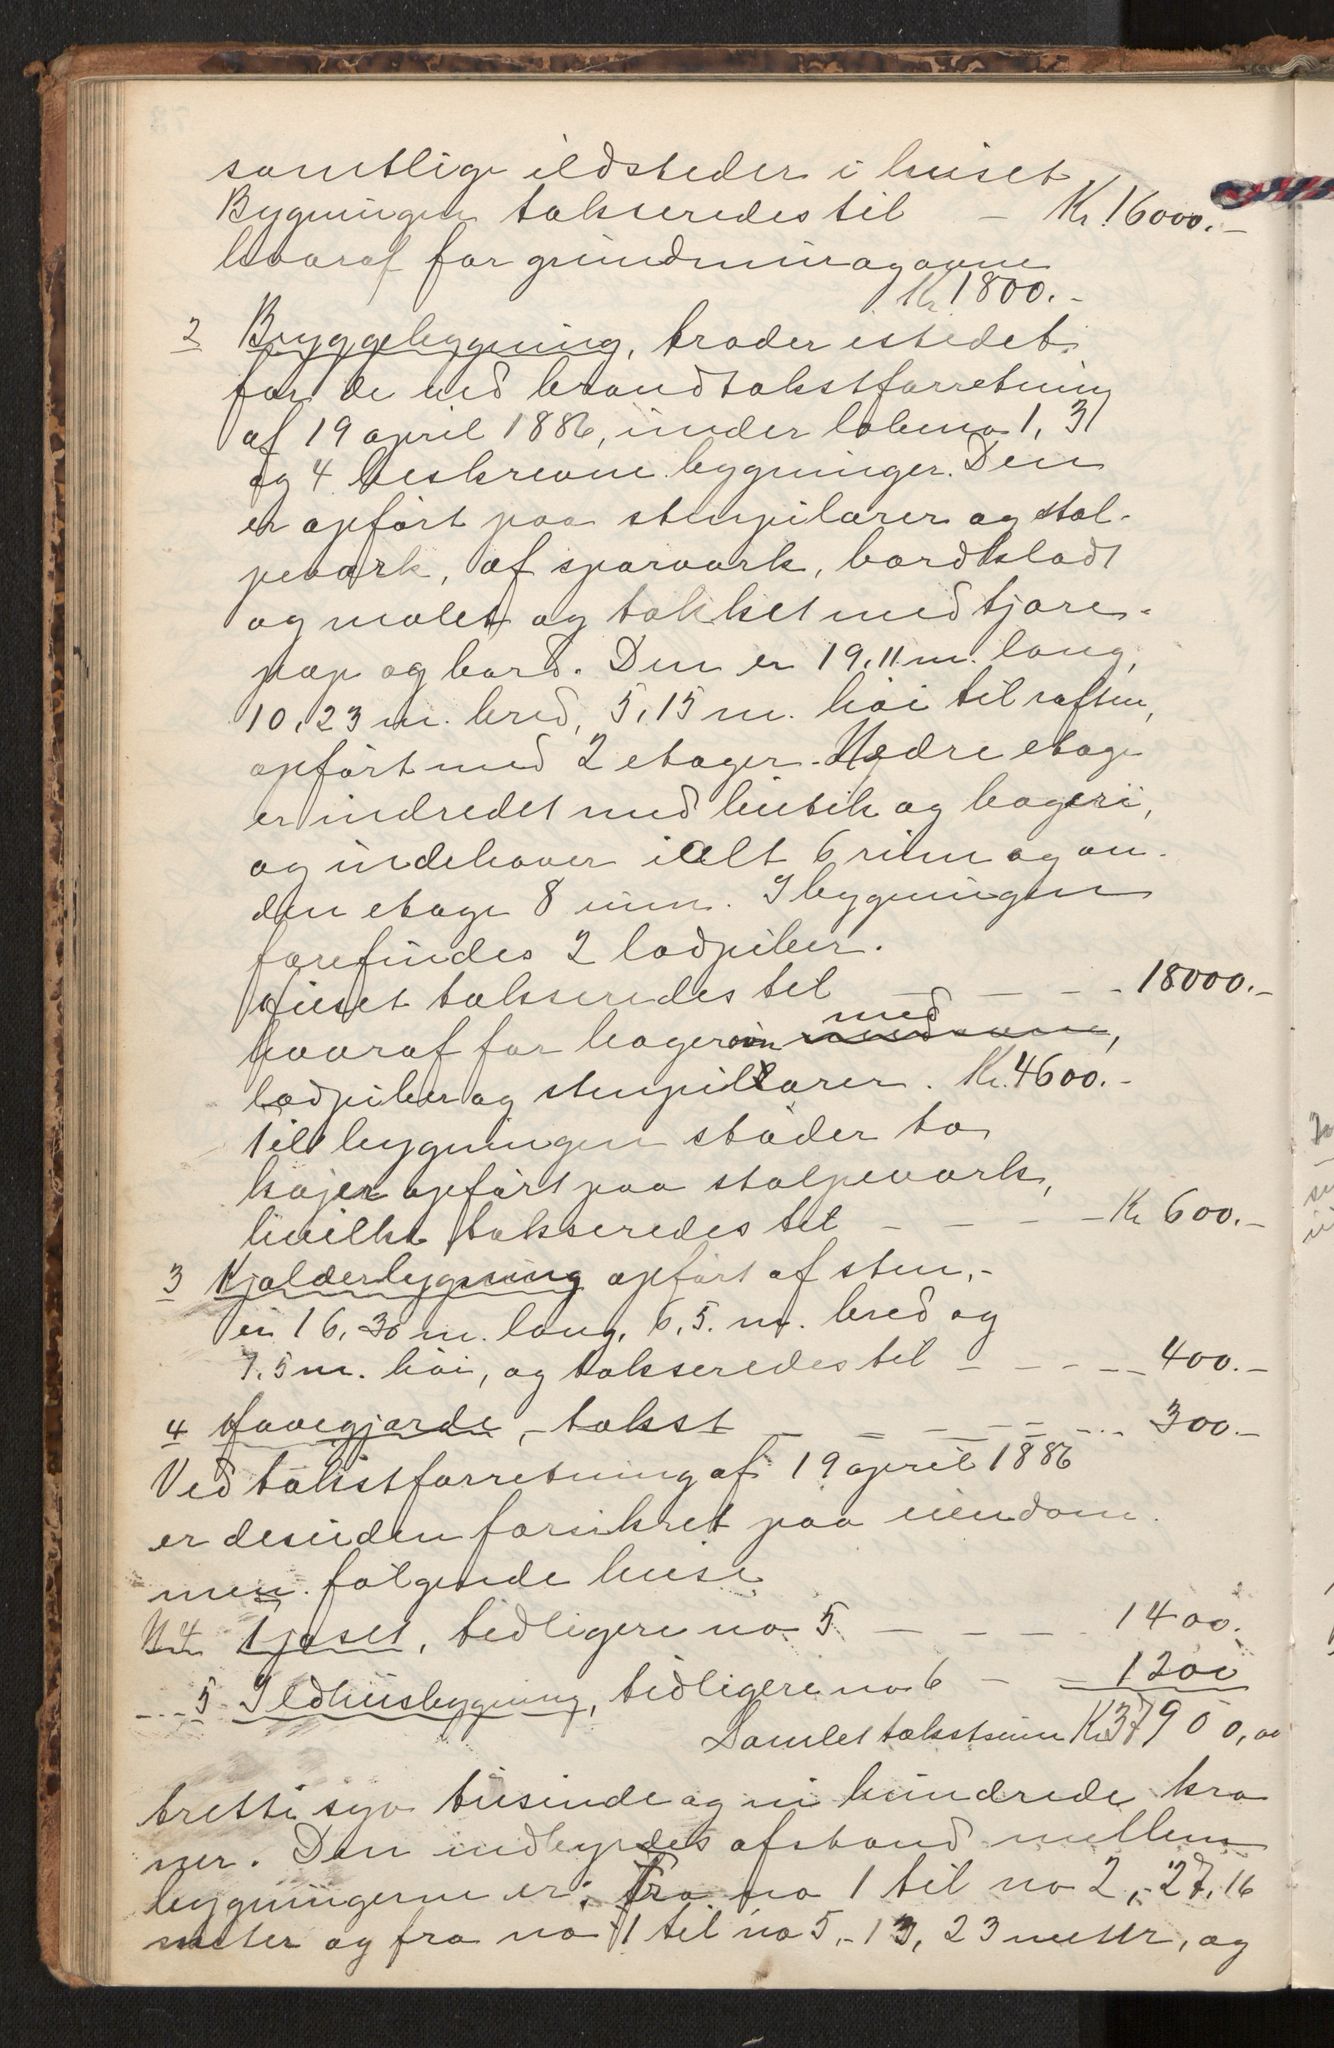 samtlige ildsteder i huset
Bygningen takseredes til – Kr. 16000.–
hvoraf for grundmur og ovne
Kr 1800.–
2 Bryggebygning, træder istedet
for de ved brandtakstforretning
af 19 april 1886, under løbeno 1, 3
og 4 beskrevne bygninger. Den
er opført paa stenpilarer og stol-
peværk, af sparværk, bordklædt
og malet og tækket med tjære-
pap og bord. Den er 19,11 m. lang,
10,23 m. bred, 5,15 m. høi til raften,
opført med 2 etager. Nedre etage
er indredet med butik og bageri,
og indehaver ialt 6 rum og an-
den etage 8 rum. I bygningen
forefindes 2 ladpiber.
Huset takseredes til – – – – 18000.–
hvoraf for bagerovn med
ladpiber og stenpillarer. Kr. 4600.–
Til bygningen støder to
kajer opført paa stolpeværk,
hvilke takseredes til – – – – Kr 600.–
3 Kjælderbygning opført af sten,–
er 16,30 m. lang, 6,5 m. bred og
7,5 m. høi, og takseredes til – – – – 400.–
4 Havegjærde, – takst – – – – – 300.–
Ved takstforretning af 19 april 1886
er desuden forsikret paa eiendom-
men følgende huse
N 4 Fjøset, tidligere no 5 – – – – 1400.
5 Ildhusbygning, tidligere no 6 – – 1200
Samlet takstsum Kr 37900,00
tretti syv tusinde og ni hundrede kro
ner. Den indbyrdes afstand mellem
bygningerne er: Fra no 1 til no 2,– 27,16
meter og fra no 1 til no 5,– 13,23 meter, og